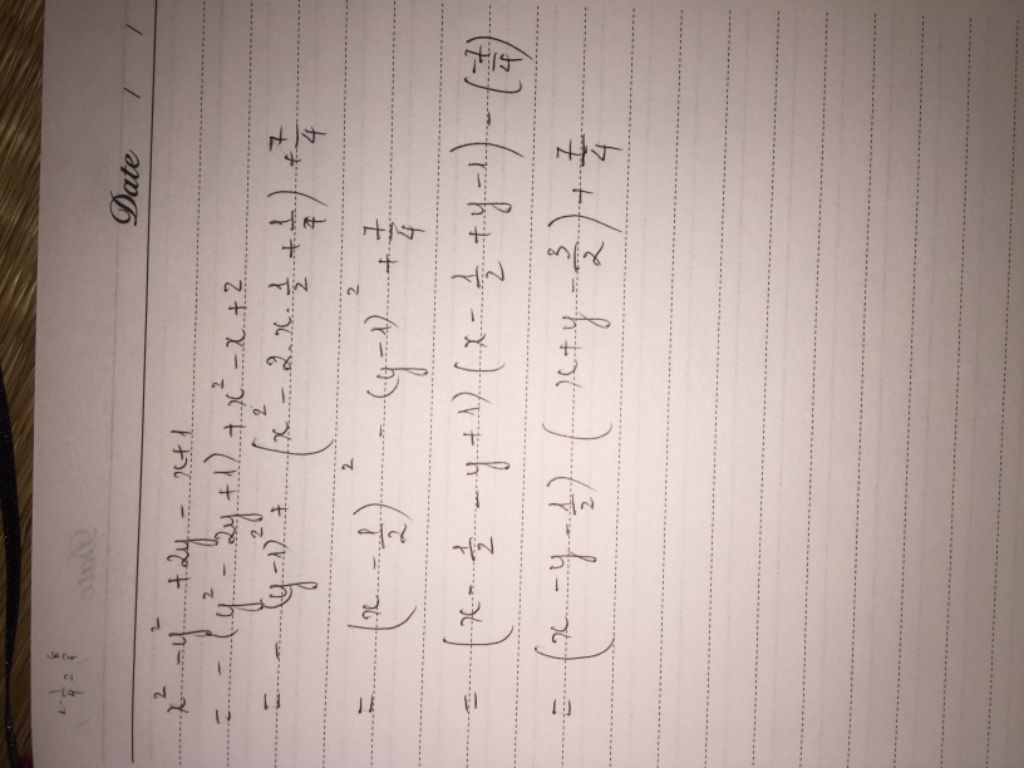 Date / /
x² - y² + 2y - x + 1
= - (y² - 2y + 1) + x² - x + 2
= - (y-1)² + (x² - 2.x.1/2 + 1/4) + 7/4
= (x - 1/2)² - (y-1)² + 7/4
= (x - 1/2 - y + 1) (x - 1/2 + y - 1) - (-7/4)
= (x - y - 1/2) (x + y - 3/2) + 7/4